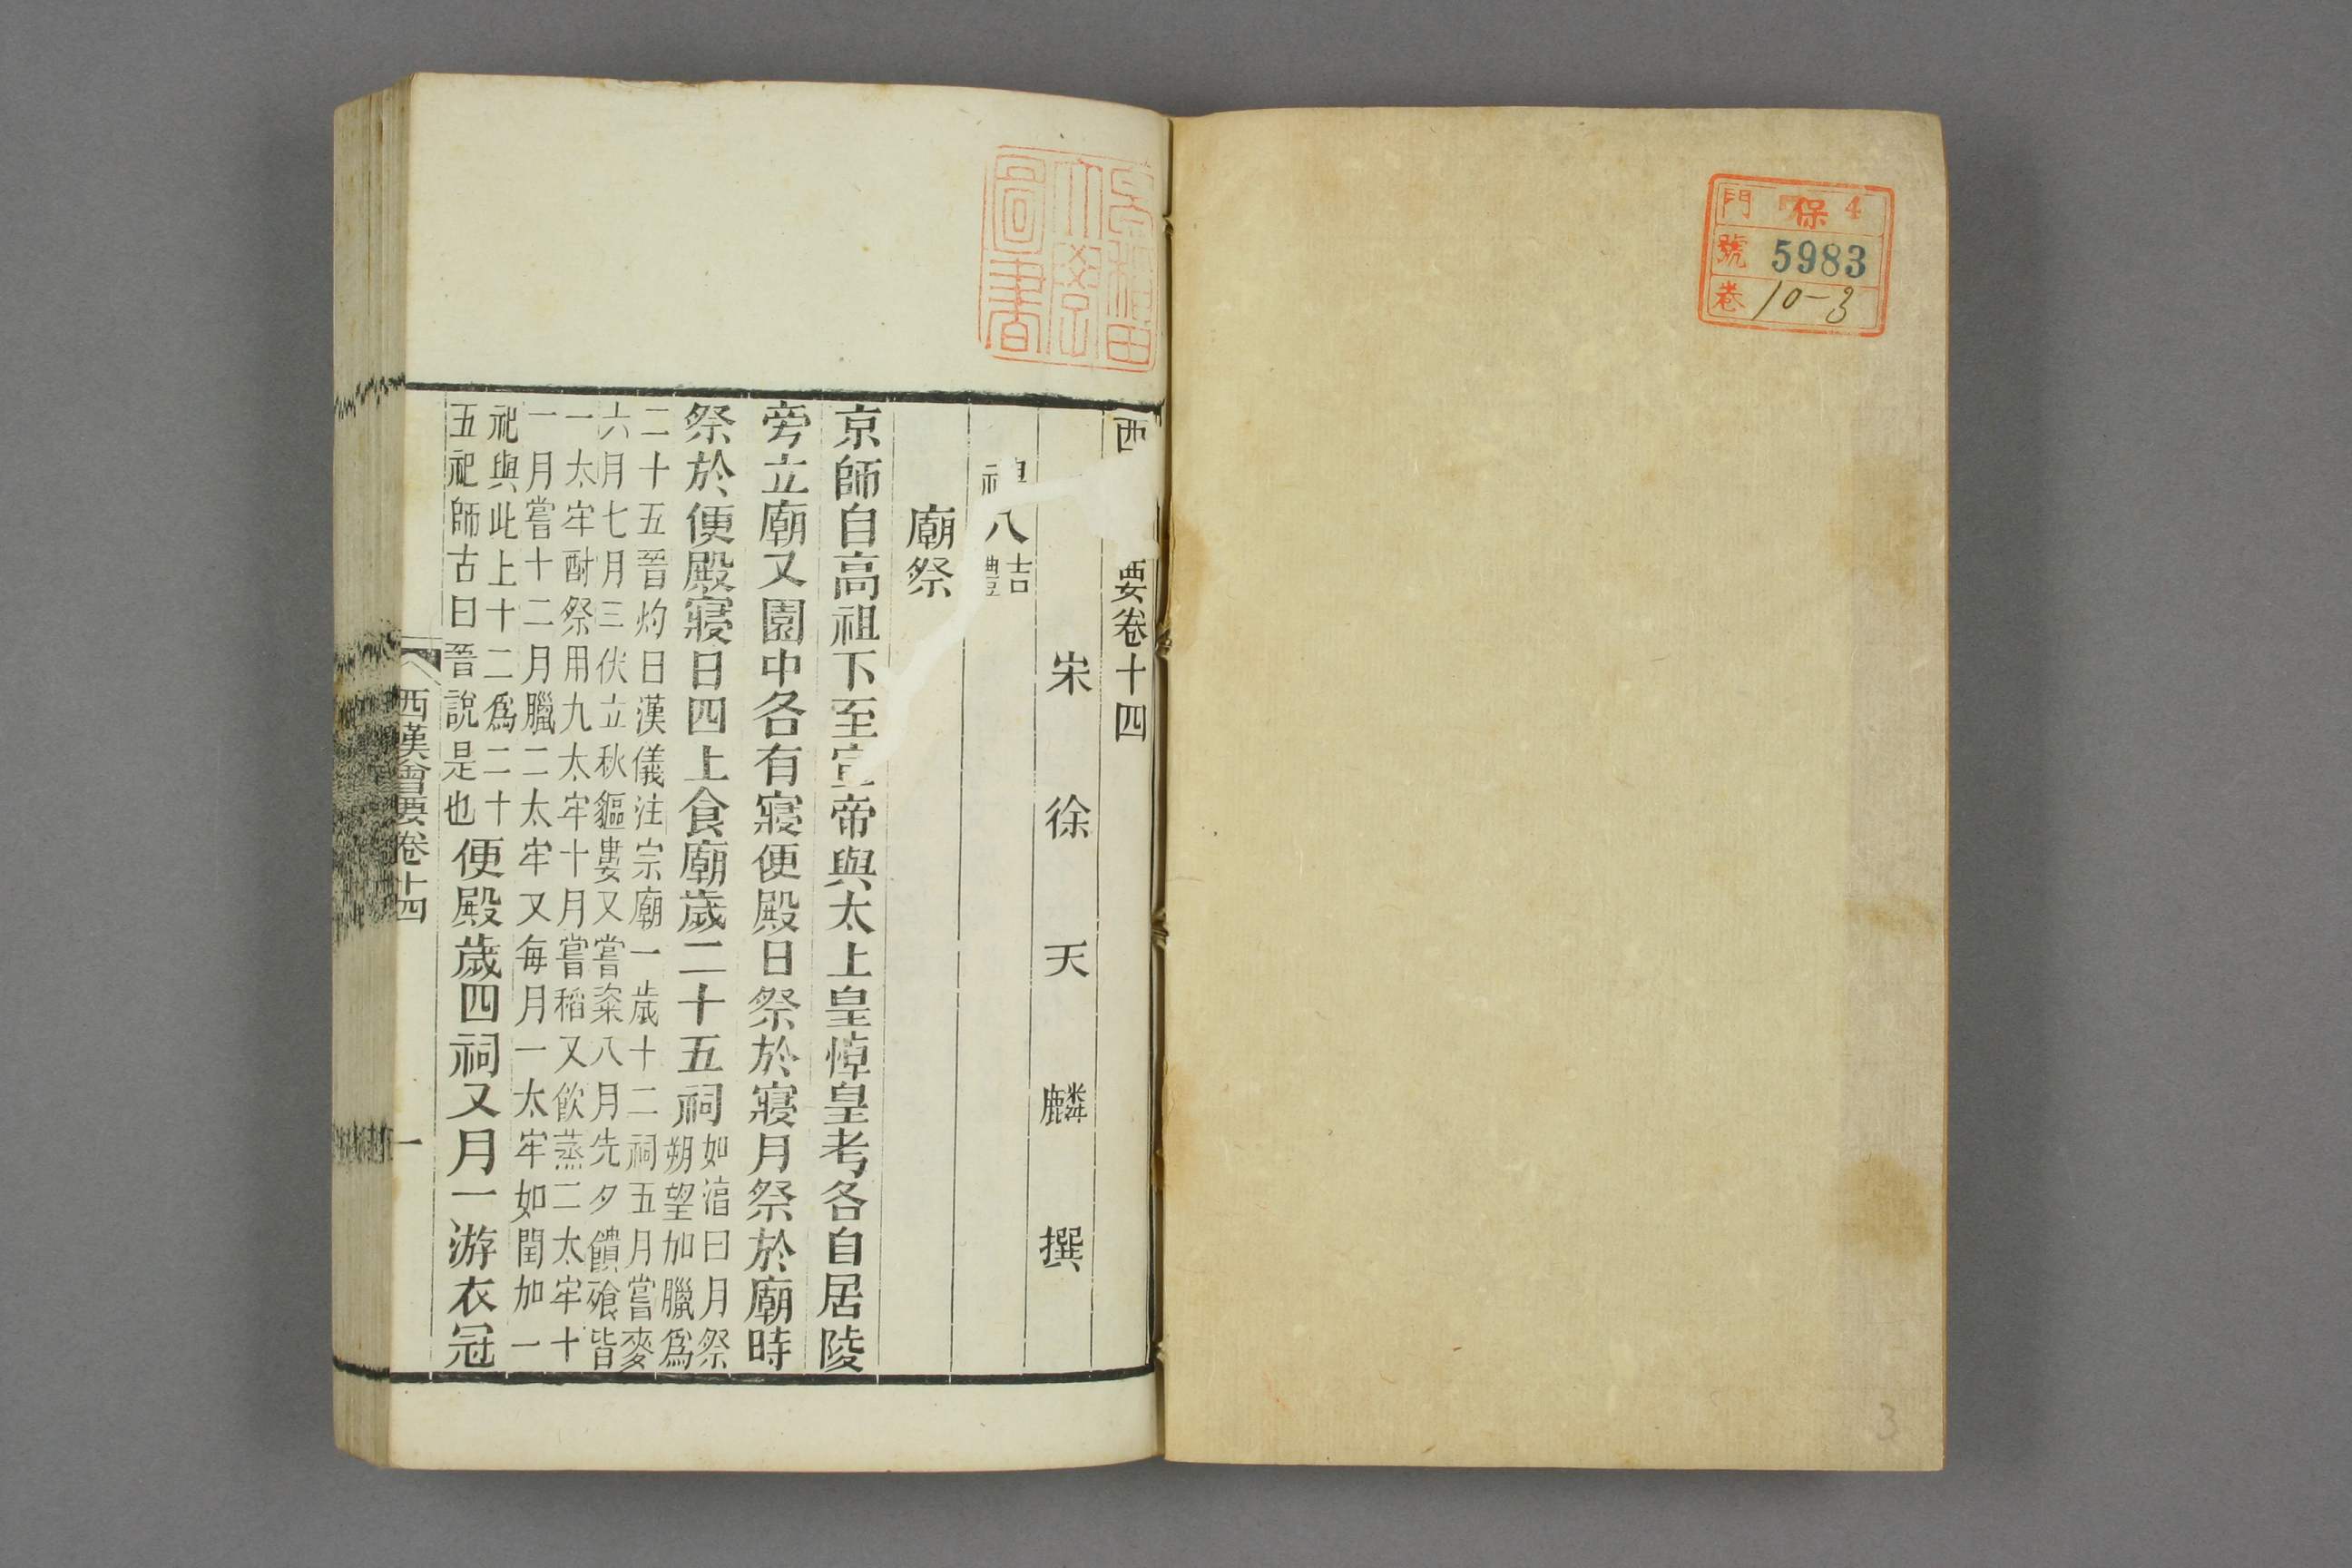 門 保 4
號 5983
卷 10-3
3
早稻田
大學
圖書
西要卷十四
宋徐天麟撰
八吉禮
廟祭
京師自高祖下至宣帝與太上皇悼皇考各自居陵
旁立廟又園中各有寢便殿日祭於寢月祭於廟時
祭於便殿寢日四上食廟歲二十五祠如湻曰月祭
朔望加臘爲
二十五晉灼曰漢儀注宗廟一歲十二祠五月嘗麥
六月七月三伏立秋貙婁又嘗粢八月先夕饋飱皆
一太牢酎祭用九太牢十月嘗稻又飲蒸二太牢十
一月嘗十二月臘二太牢又每月一太牢如閏加一
祀與此上十二爲二十
五祀師古曰晉說是也便殿歲四祠又月一游衣冠
西漢會要卷十四
一